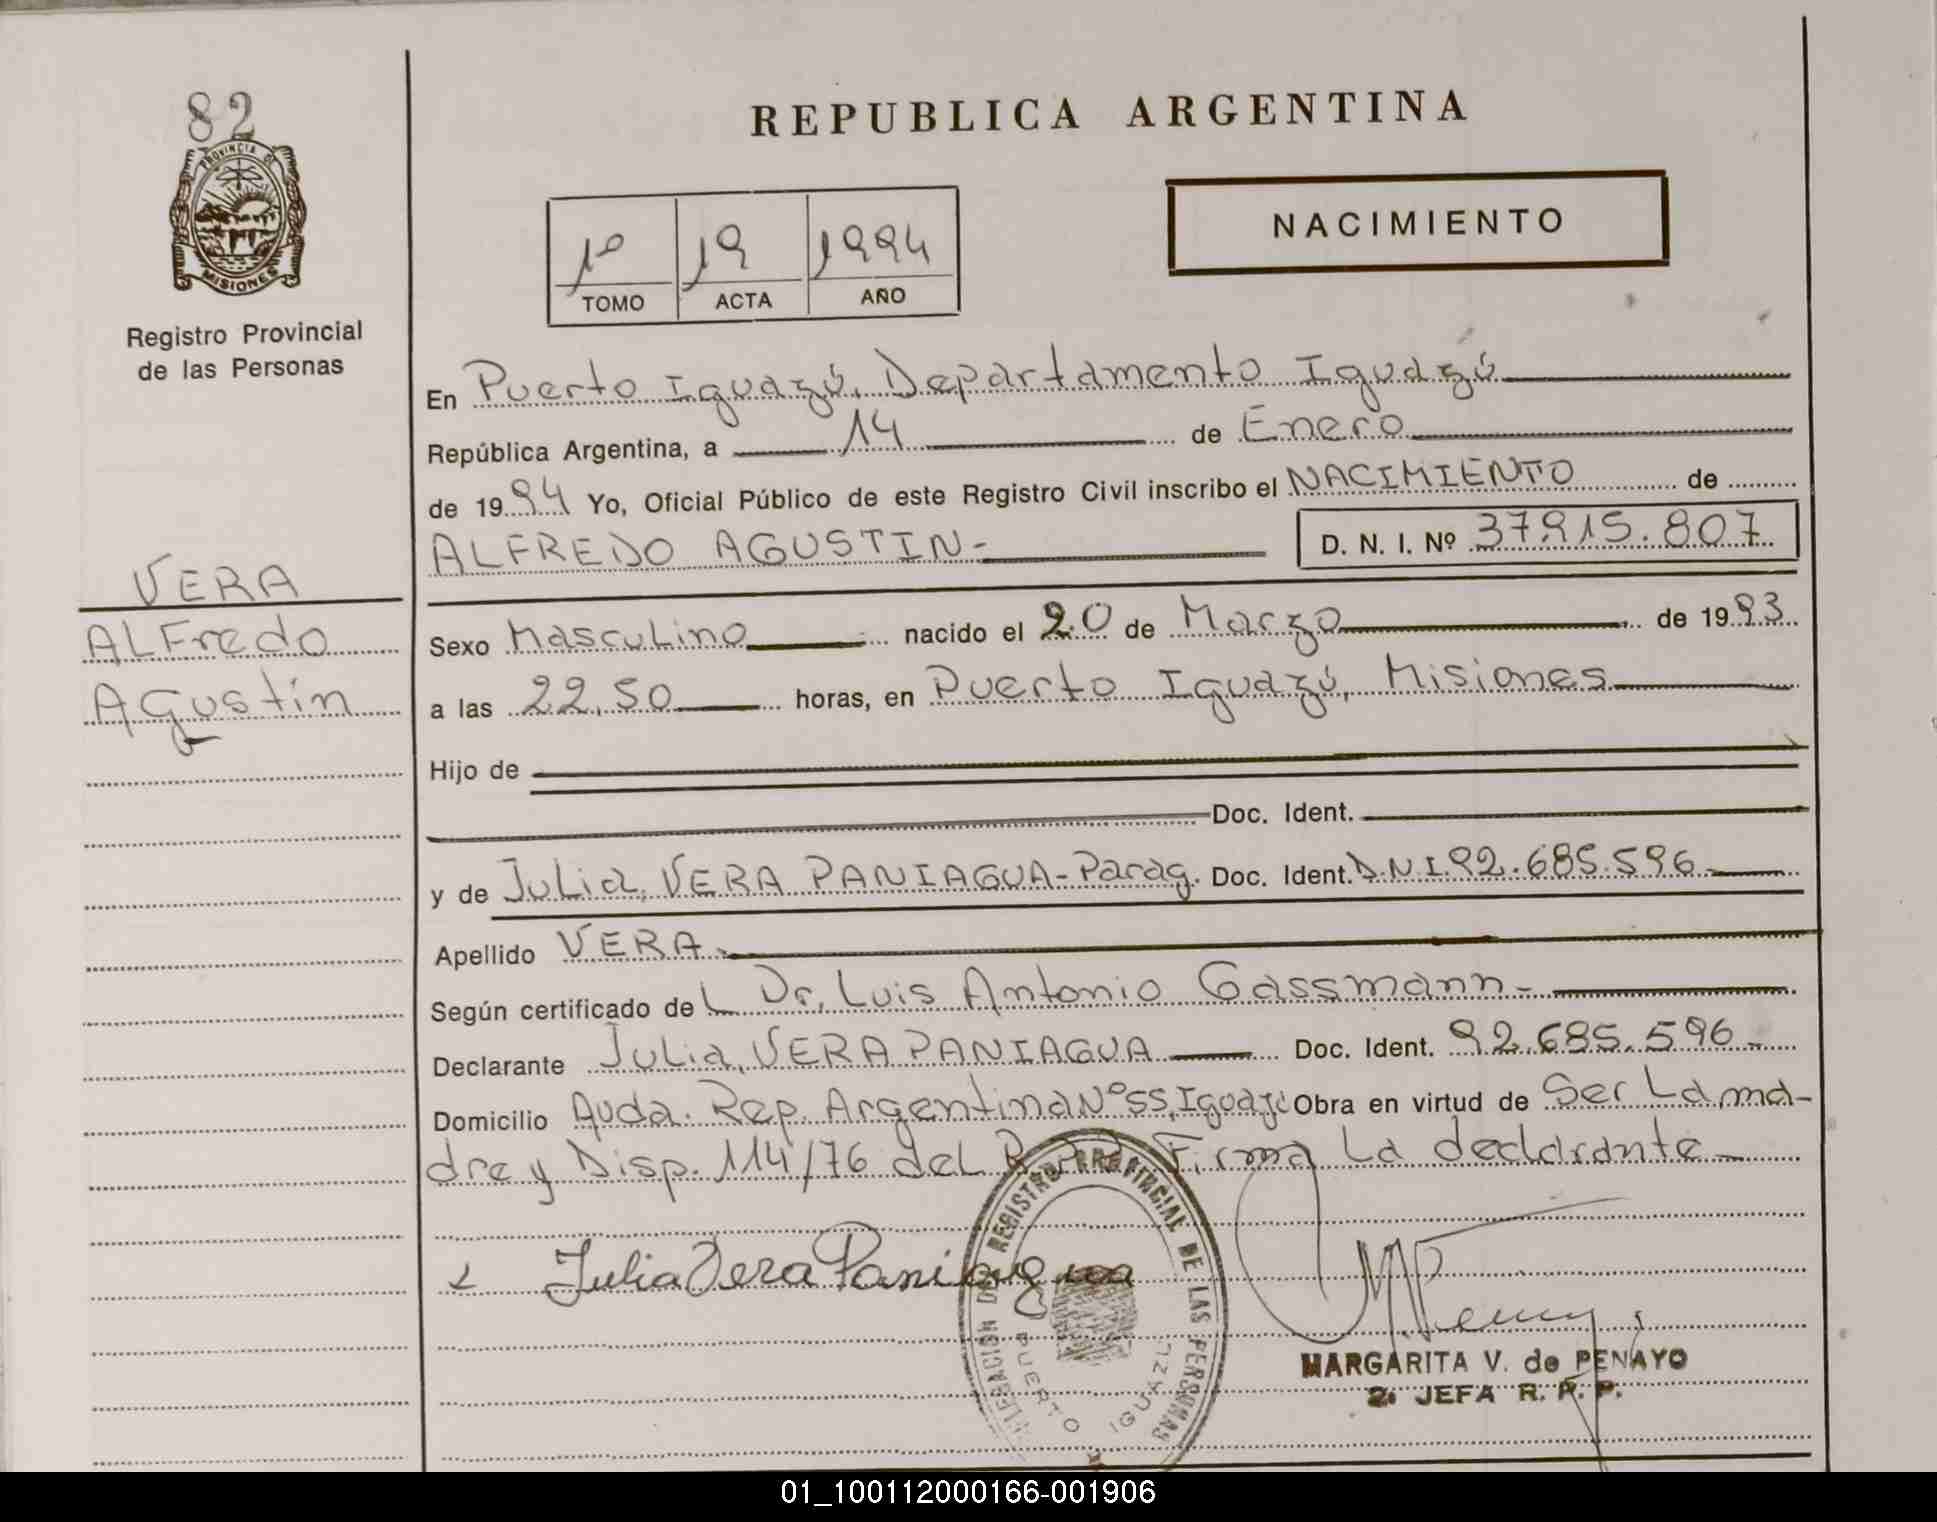 82
PROVINCIA DE
MISIONES
Registro Provincial
de las Personas
VERA
ALFredo
Agustín
REPUBLICA ARGENTINA
NACIMIENTO
1º 19 1994
TOMO ACTA AÑO
En Puerto Iguazú, Departamento Iguazú
República Argentina, a 14 de Enero
de 1994 Yo, Oficial Público de este Registro Civil inscribo el NACIMIENTO de
ALFREDO AGUSTIN- D. N. I. Nº 37.915.807
Sexo Masculino nacido el 20 de Marzo de 1993
a las 22,50 horas, en Puerto Iguazú, Misiones
Hijo de
Doc. Ident.
y de Julia, VERA PANIAGUA-Parag. Doc. Ident. D.N.I.92.685.596
Apellido VERA
Según certificado del Dr. Luis Antonio Gassmann-
Declarante Julia, VERA PANIAGUA Doc. Ident. 92.685.596
Domicilio Avda. Rep. Argentina Nº 55, Iguazú Obra en virtud de Ser La ma-
dre y Disp. 114/76 del R.P.P. Firma La declarante
Julia Vera Paniagua
DELEGACION DEL REGISTRO PROVINCIAL DE LAS PERSONAS
PUERTO IGUAZU
MARGARITA V. de PENAYO
2º JEFA R. P. P.
01_100112000166-001906